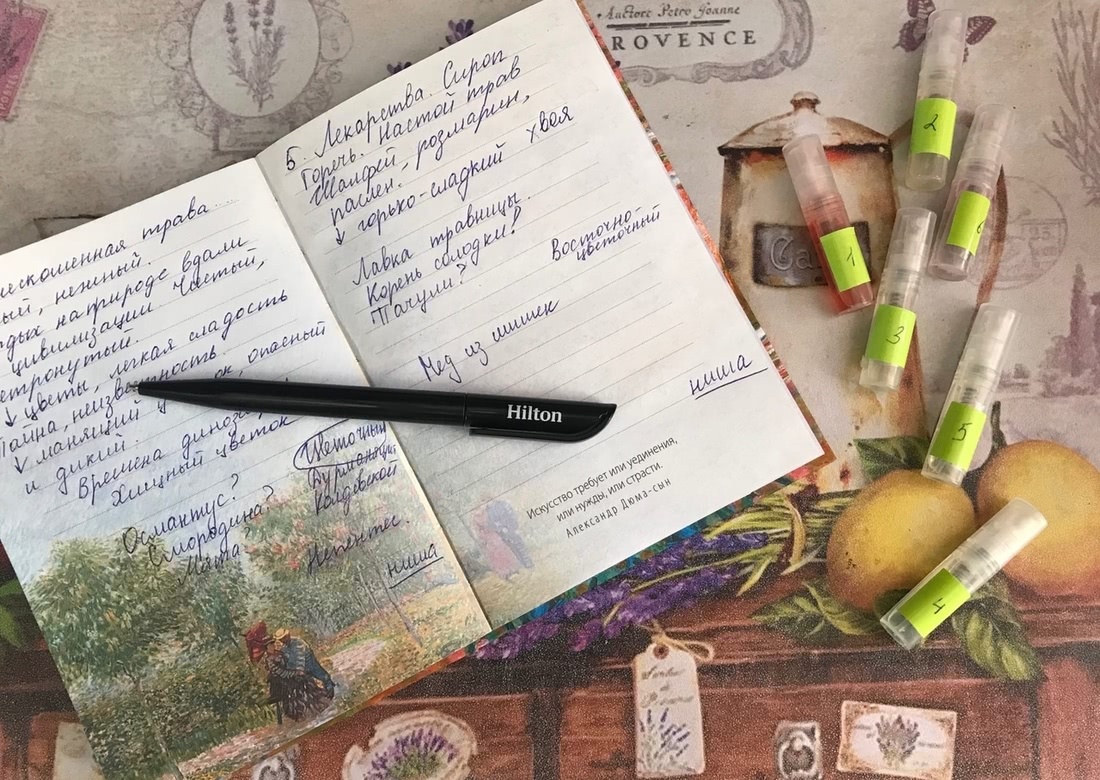 нескошенная трава...
ый, нежный.
дых на природе вдали
цивилизации. Чистый,
етронутый.
↓ цветы, легкая сладость
Тайна, неизвестность.
↓ манящий опасный
и дикий.
Времена
Хищный цветок
Османтус?
Смородина?
Мята
Цветочный
Дурманящий
Колдовской
Непентес.
ниша
5. Лекарства. Сироп
Горечь. Настой трав
Шалфей, розмарин,
паслен.
↓ горько-сладкий хвоя
Лавка травницы.
Корень солодки!
Пачули?
Восточно-
цветочный
Мед из шишек
ниша
Искусство требует или уединения,
или нужды, или страсти.
Александр Дюма-сын
Hilton
Auctore Petro Joanne
ROVENCE
Ca
2
1
3
5
4